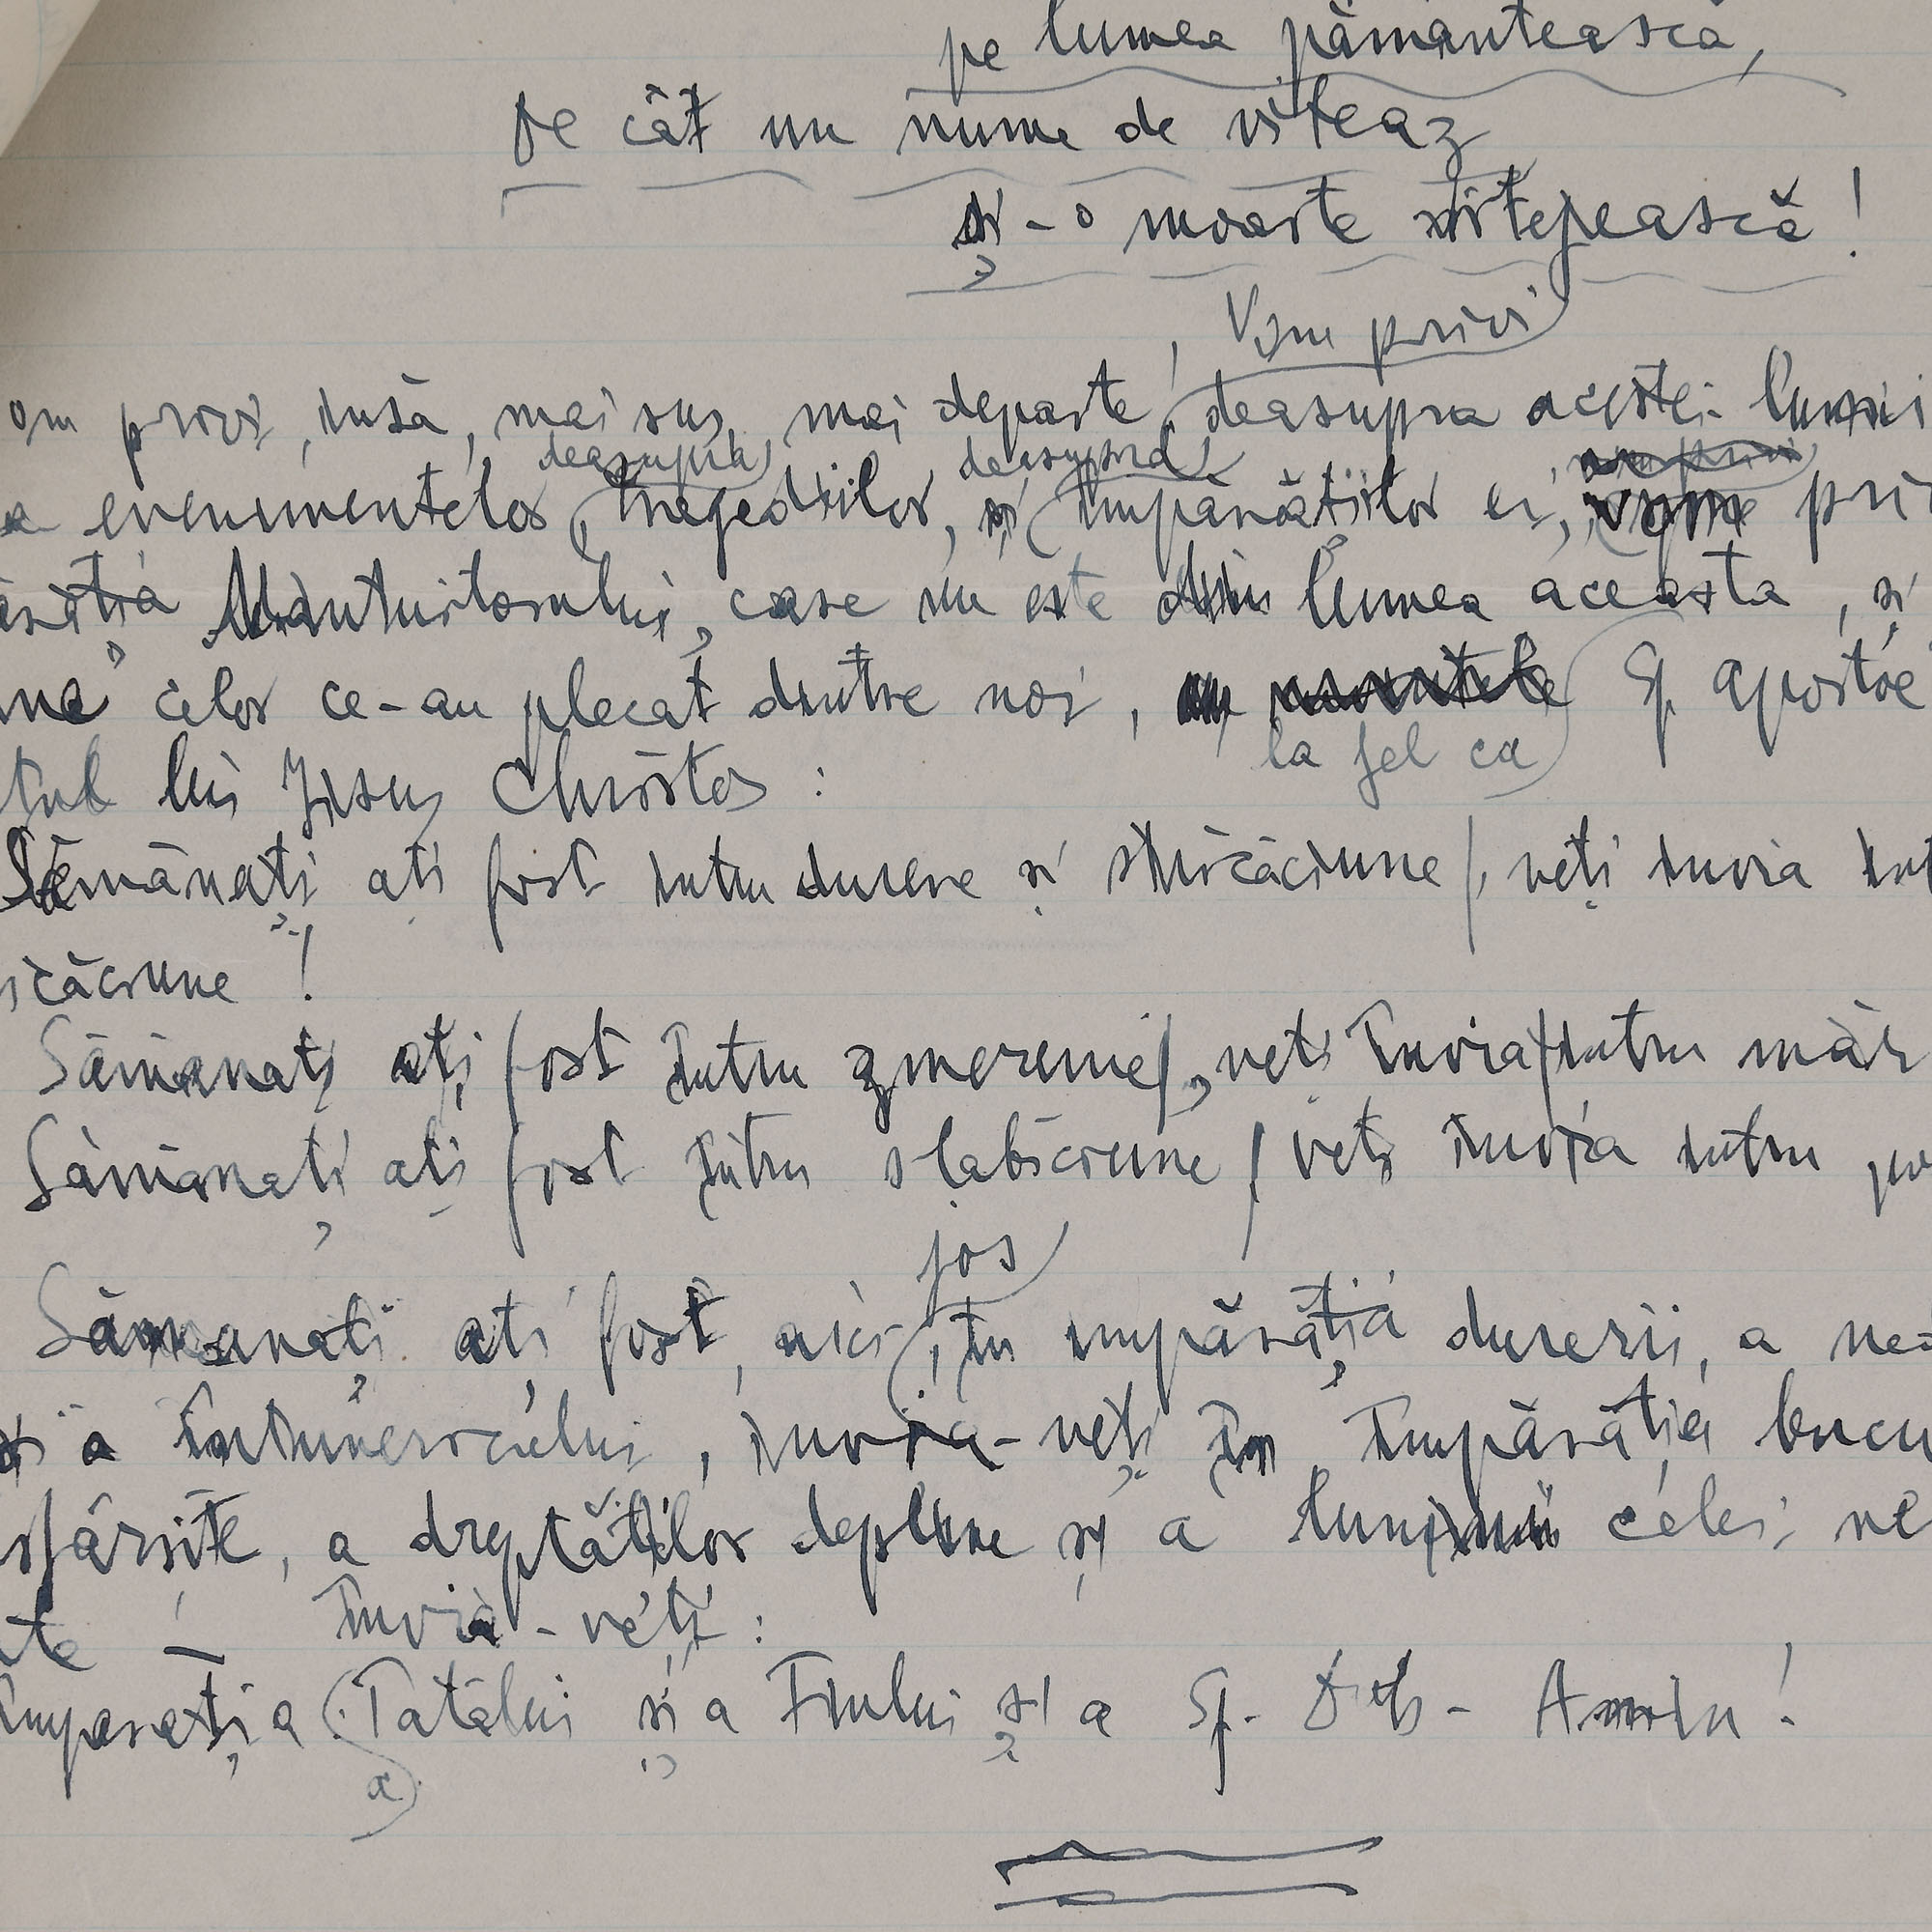 pe lumea pământească,
De cât un nume de viteaz
și-o moarte vitejească!
Vom privi
om privi, însă, mai sus, mai departe, deasupra acestei lumii
deasupra deasupra
a evenimentelor, tragediilor, și împărățiilor ei, pri
ărăția Mântuitorului, care nu este din lumea aceasta, și
celor ce-au plecat dintre noi, Sf. Apostol
la fel ca
lui Iisus Christos:
Sămănați ați fost întru durere și stricăciune, veți învia înt
icăciune!
Sămănați ați fost întru zmerenie, veți învia întru măr
Sămănați ați fost întru slabiciune, veți învia întru pu
jos
Sămănați ați fost, aici, în împărăția durerii, a ne
și a întunericului, învia-veți în Împărăția bucu
sfârsite, a dreptăților depline și a luminii celei ne
te – Învia-veți:
Împarația Tatălui și a Fiului și a Sf. Duh - Amin!
a